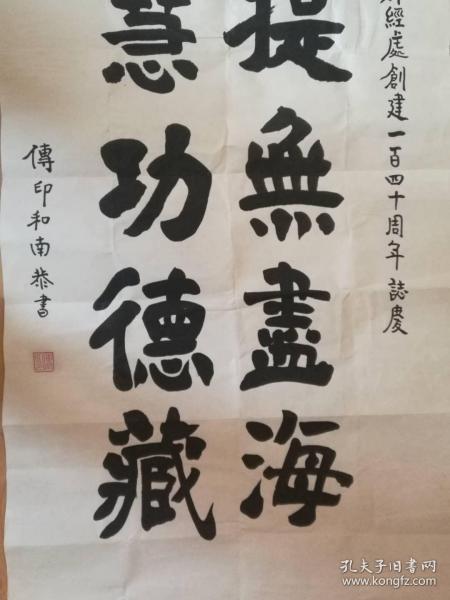 經處創建一百四十周年誌慶
提無盡海
慧功德藏
傳印和南恭書
孔夫子旧书网
www.kongfz.com